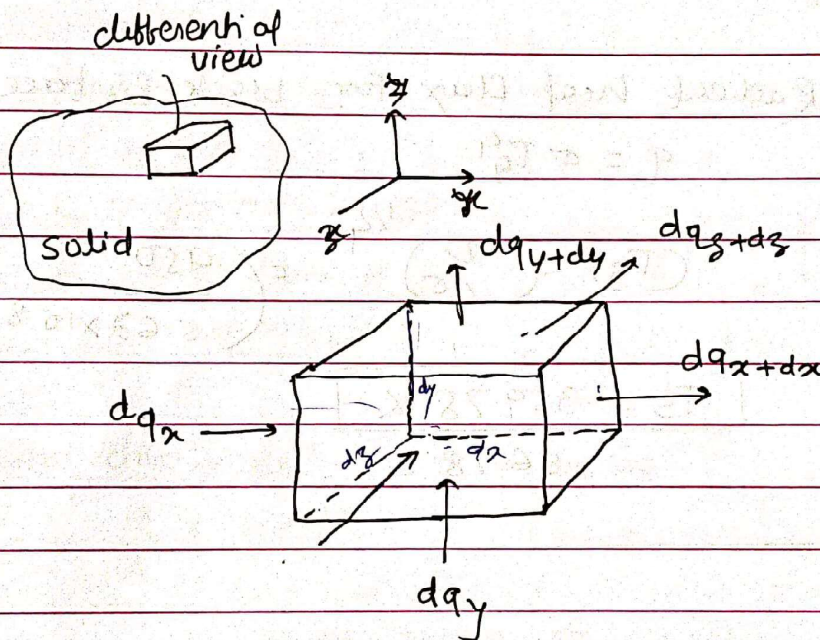 differential
view
y
x
z
solid
dqy+dy
dqz+dz
dqx+dx
dqx
dy
dz
dx
dqy